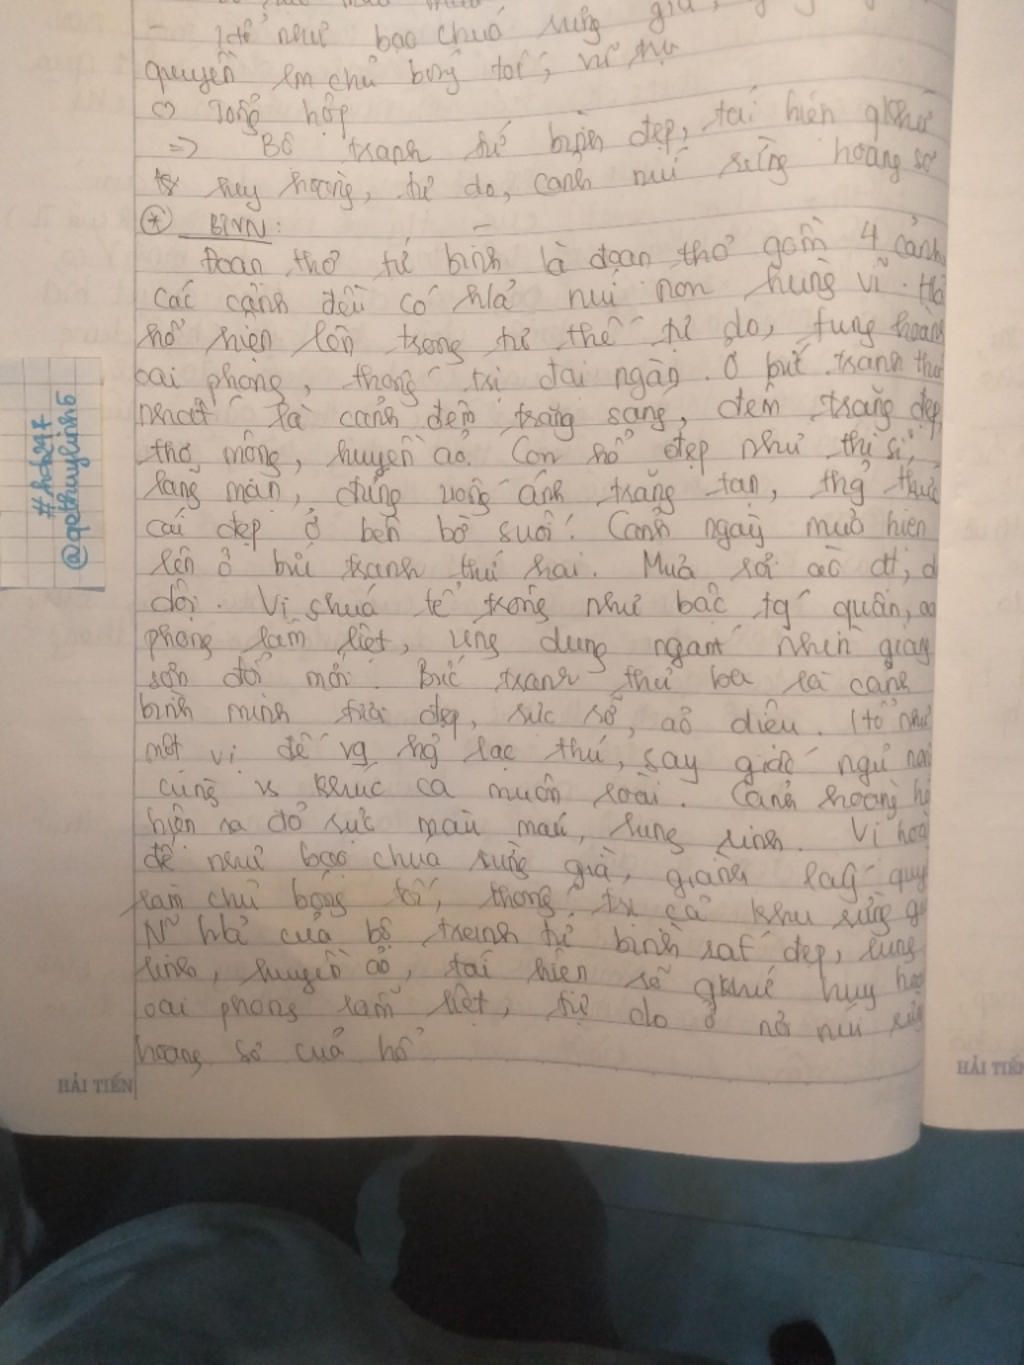 - Hổ như bạo chúa rừng già,
quyền làm chủ bóng tối, vũ trụ
Tổng hợp
=> Bộ tranh tứ bình đẹp, tái hiện qkhứ
huy hoàng, tự do, cảnh núi rừng hoang sơ
* BÌNH:
Đoạn thơ tứ bình là đoạn thơ gồm 4 cảnh
các cảnh đều có núi non hùng vĩ.
hổ hiện lên trong tư thế tự do, tung hoành
oai phong, thống trị đại ngàn. Ở bức tranh thứ
nhất là cảnh đêm trăng sáng, đêm trăng đẹp
thơ mộng, huyền ảo. Con hổ đẹp như thi sĩ,
lãng mạn, đứng uống ánh trăng tan, thg thức
cái đẹp ở bên bờ suối. Cảnh ngày mưa hiện
lên ở bức tranh thứ hai. Mưa rơi ào ạt,
dội. Vị chúa tể trông như bậc tg quân, oai
phong lẫm liệt, ung dung ngắm nhìn giang
sơn đổi mới. Bức tranh thứ ba là cảnh
bình minh tươi đẹp, rực rỡ, ảo diệu. Hổ như
một vị đế vg hg lạc thú, say giấc ngủ
cùng vs khúc ca muôn loài. Cảnh hoàng hô
hiện ra đỏ rực màu máu, rùng rinh. Vị hoàng
đế như bạo chúa rừng già, giành lấy quyền
làm chủ bóng tối, thống trị cả khu rừng
của bộ tranh tứ bình rất đẹp, lung
linh, huyền ảo, tái hiện qkhứ huy hoàng
oai phong lẫm liệt, tự do ở núi rừng
hoang sơ của hổ
HẢI TIẾN
HẢI TIẾN
#hs247
@gethuylinh5